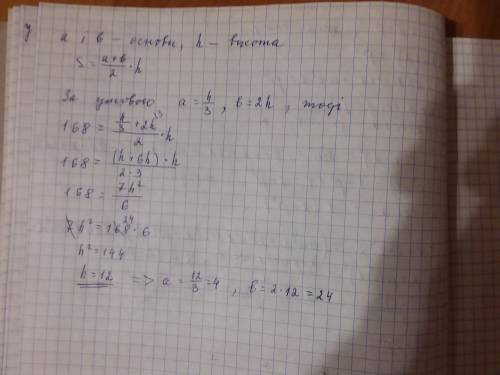 7
a і b - основи, h - высота
S = (a+b)/2 · h
За умовою a = h/3, b = 2h, тоді
168 = (h/3 + 2h)/2 · h
168 = (h + 6h) · h/(2·3)
168 = 7h²/6
7h² = 168 · 6
24
h² = 144
h = 12 => a = 12/3 = 4, b = 2·12 = 24